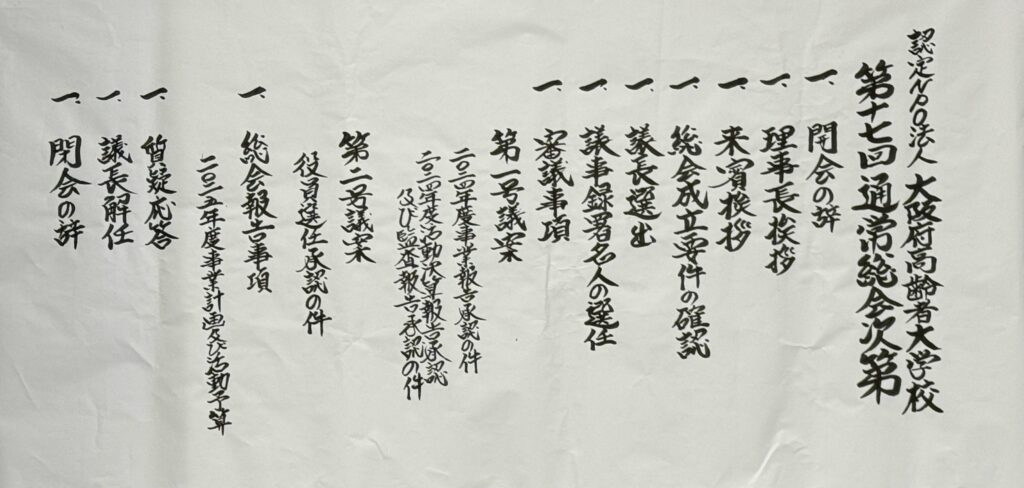 認定NPO法人 大阪府高齢者大学校
第十七回通常総会次第
一、開会の辞
一、理事長挨拶
一、来賓挨拶
一、総会成立要件の確認
一、議長選出
一、議事録署名人の選任
一、審議事項
第一号議案
二〇二四年度事業報告承認の件
二〇二四年度活動決算報告承認
及び監査報告承認の件
第二号議案
役員選任承認の件
一、総会報告事項
二〇二五年度事業計画及び活動予算
一、質疑応答
一、議長解任
一、閉会の辞